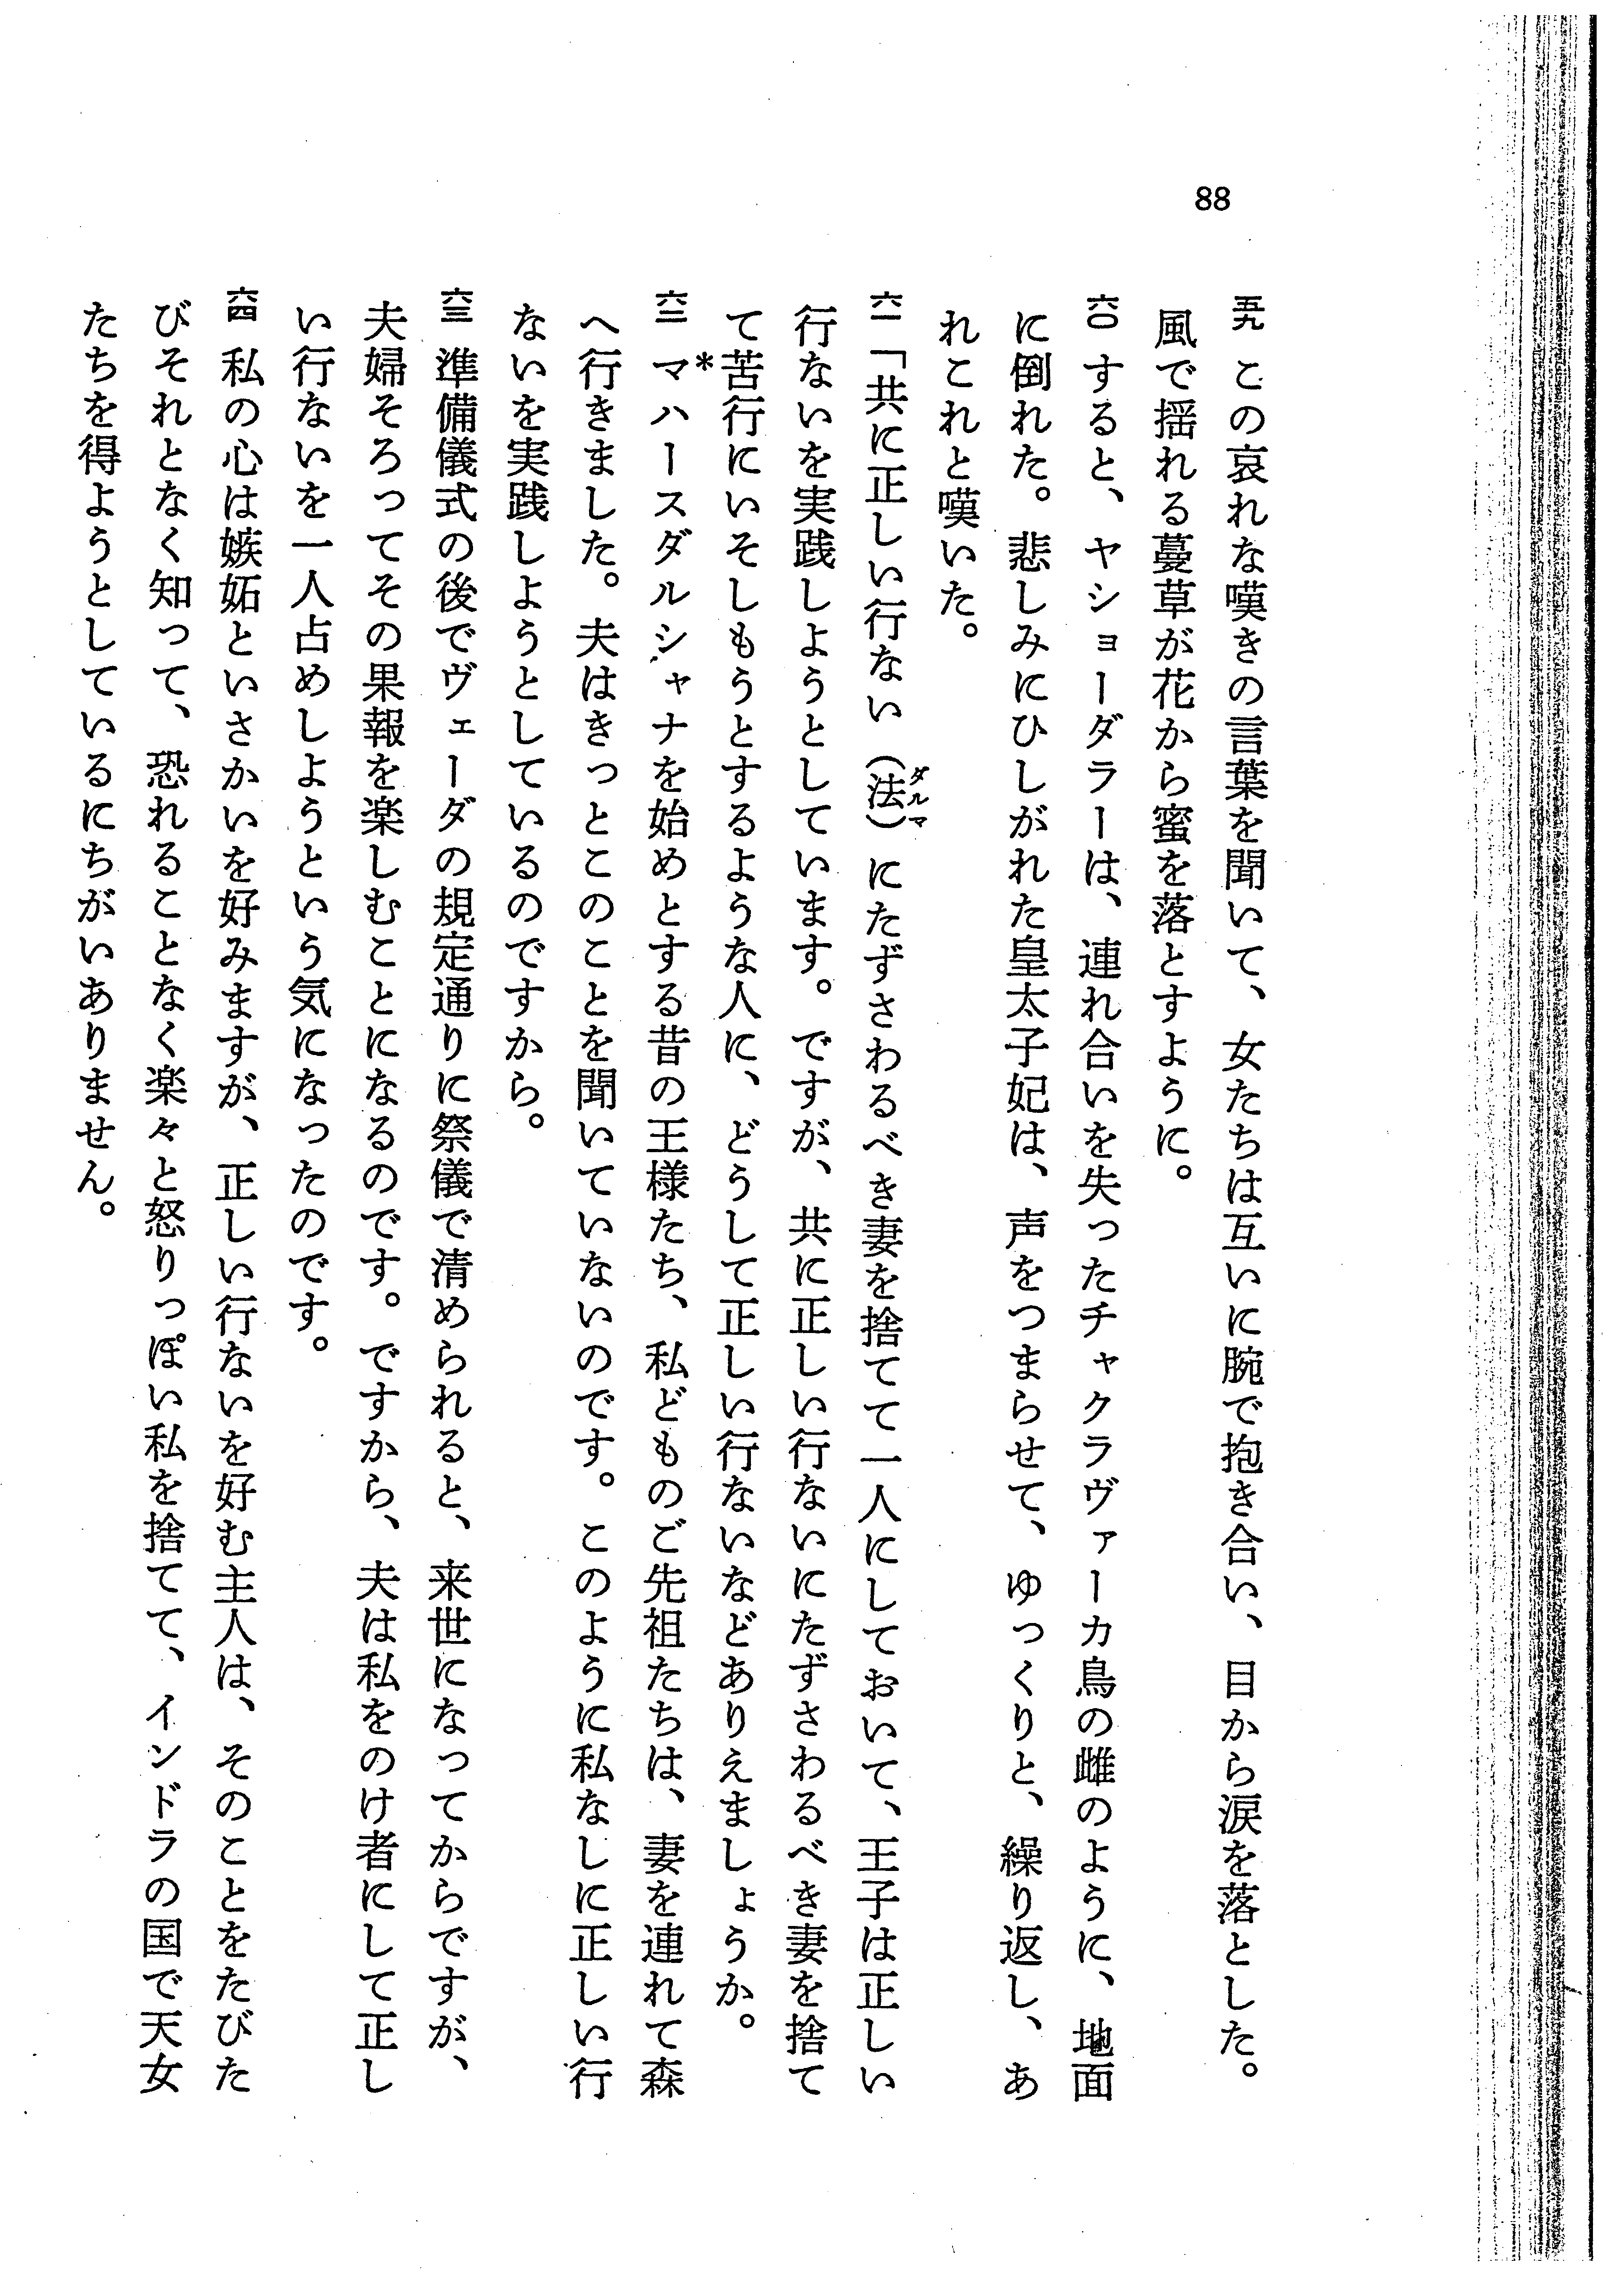 88
五九 この哀れな嘆きの言葉を聞いて、女たちは互いに腕で抱き合い、目から涙を落とした。
風で揺れる蔓草が花から蜜を落とすように。
六〇 すると、ヤショーダラーは、連れ合いを失ったチャクラヴァーカ鳥の雌のように、地面
に倒れた。悲しみにひしがれた皇太子妃は、声をつまらせて、ゆっくりと、繰り返し、あ
れこれと嘆いた。
六一 「共に正しい行ない（法ダルマ）にたずさわるべき妻を捨てて一人にしておいて、王子は正しい
行ないを実践しようとしています。ですが、共に正しい行ないにたずさわるべき妻を捨て
て苦行にいそしもうとするような人に、どうして正しい行ないなどありえましょうか。
六二 *マハースダルシャナを始めとする昔の王様たち、私どものご先祖たちは、妻を連れて森
へ行きました。夫はきっとこのことを聞いていないのです。このように私なしに正しい行
ないを実践しようとしているのですから。
六三 準備儀式の後でヴェーダの規定通りに祭儀で清められると、来世になってからですが、
夫婦そろってその果報を楽しむことになるのです。ですから、夫は私をのけ者にして正し
い行ないを一人占めしようという気になったのです。
六四 私の心は嫉妬といさかいを好みますが、正しい行ないを好む主人は、そのことをたびた
びそれとなく知って、恐れることなく楽々と怒りっぽい私を捨てて、インドラの国で天女
たちを得ようとしているにちがいありません。